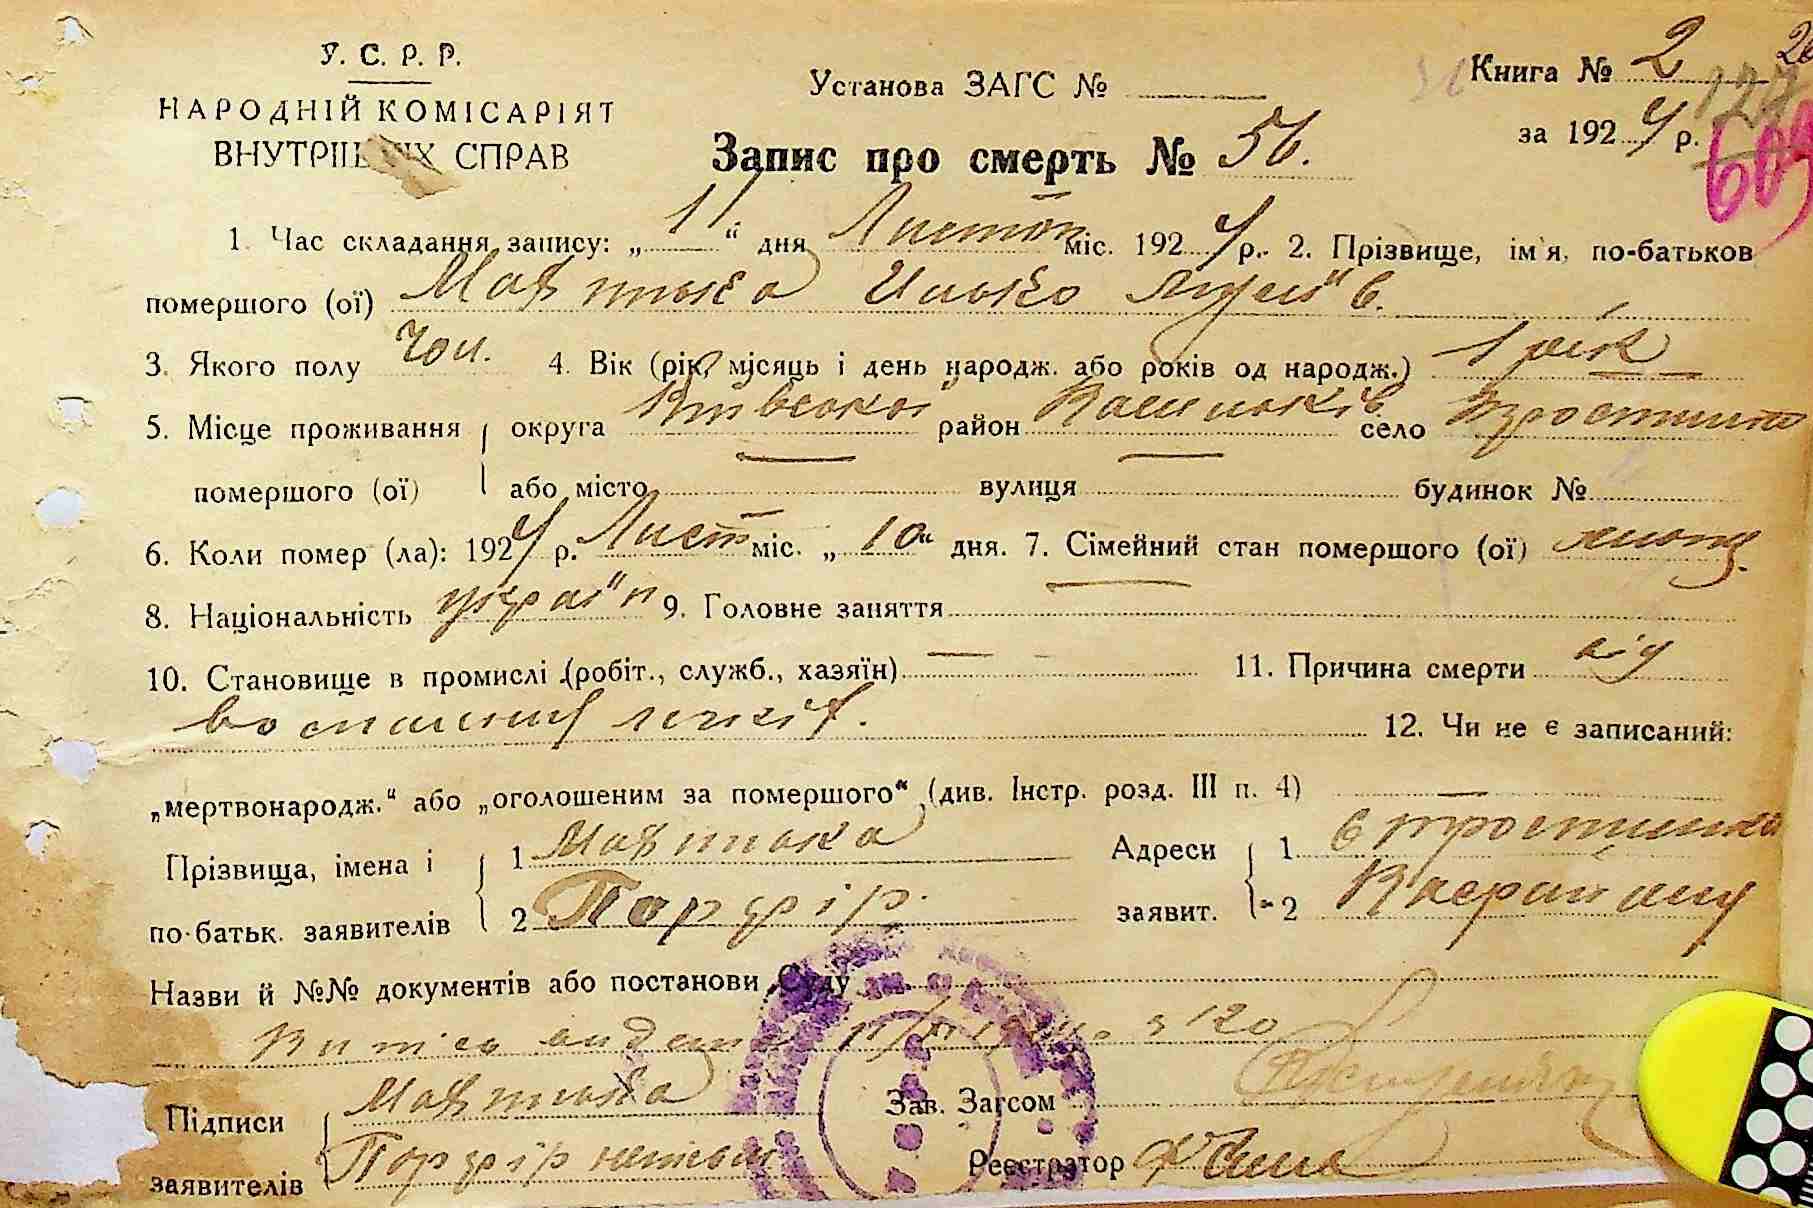 У. С. Р. Р.
НАРОДНІЙ КОМІСАРІЯТ
ВНУТРІШ ИХ СПРАВ
Установа ЗАГС №
Книга № 2
Запис про смерть № 56.
за 1924 р.
609
1. Час складання запису: „ 11 “ дня Листоп міс. 1924 р. 2. Прізвище, ім'я, по-батьков
помершого (ої) Ілько
3. Якого полу чол. 4. Вік (рік, місяць і день народж. або років од народж.) 1 рік
5. Місце проживання округа Київської район Васильків село Тростинка
помершого (ої) або місто вулиця будинок №
6. Коли помер (ла): 1924 р. Лист міс. „ 10 “ дня. 7. Сімейний стан помершого (ої)
8. Національність україн 9. Головне заняття
10. Становище в промислі (робіт., служб., хазяїн) 11. Причина смерти від
воспаления легкіх.
12. Чи не є записаний:
„мертвонародж.“ або „оголошеним за помершого“ (див. Інстр. розд. III п. 4)
Прізвища, імена і
по-батьк. заявителів
1
2 Порфір.
Адреси
заявит.
1 с Тростинка
2 Васрайону
Назви й №№ документів або постанови Суду
Підписи
заявителів
Порфір
Зав. Загсом
Реєстратор